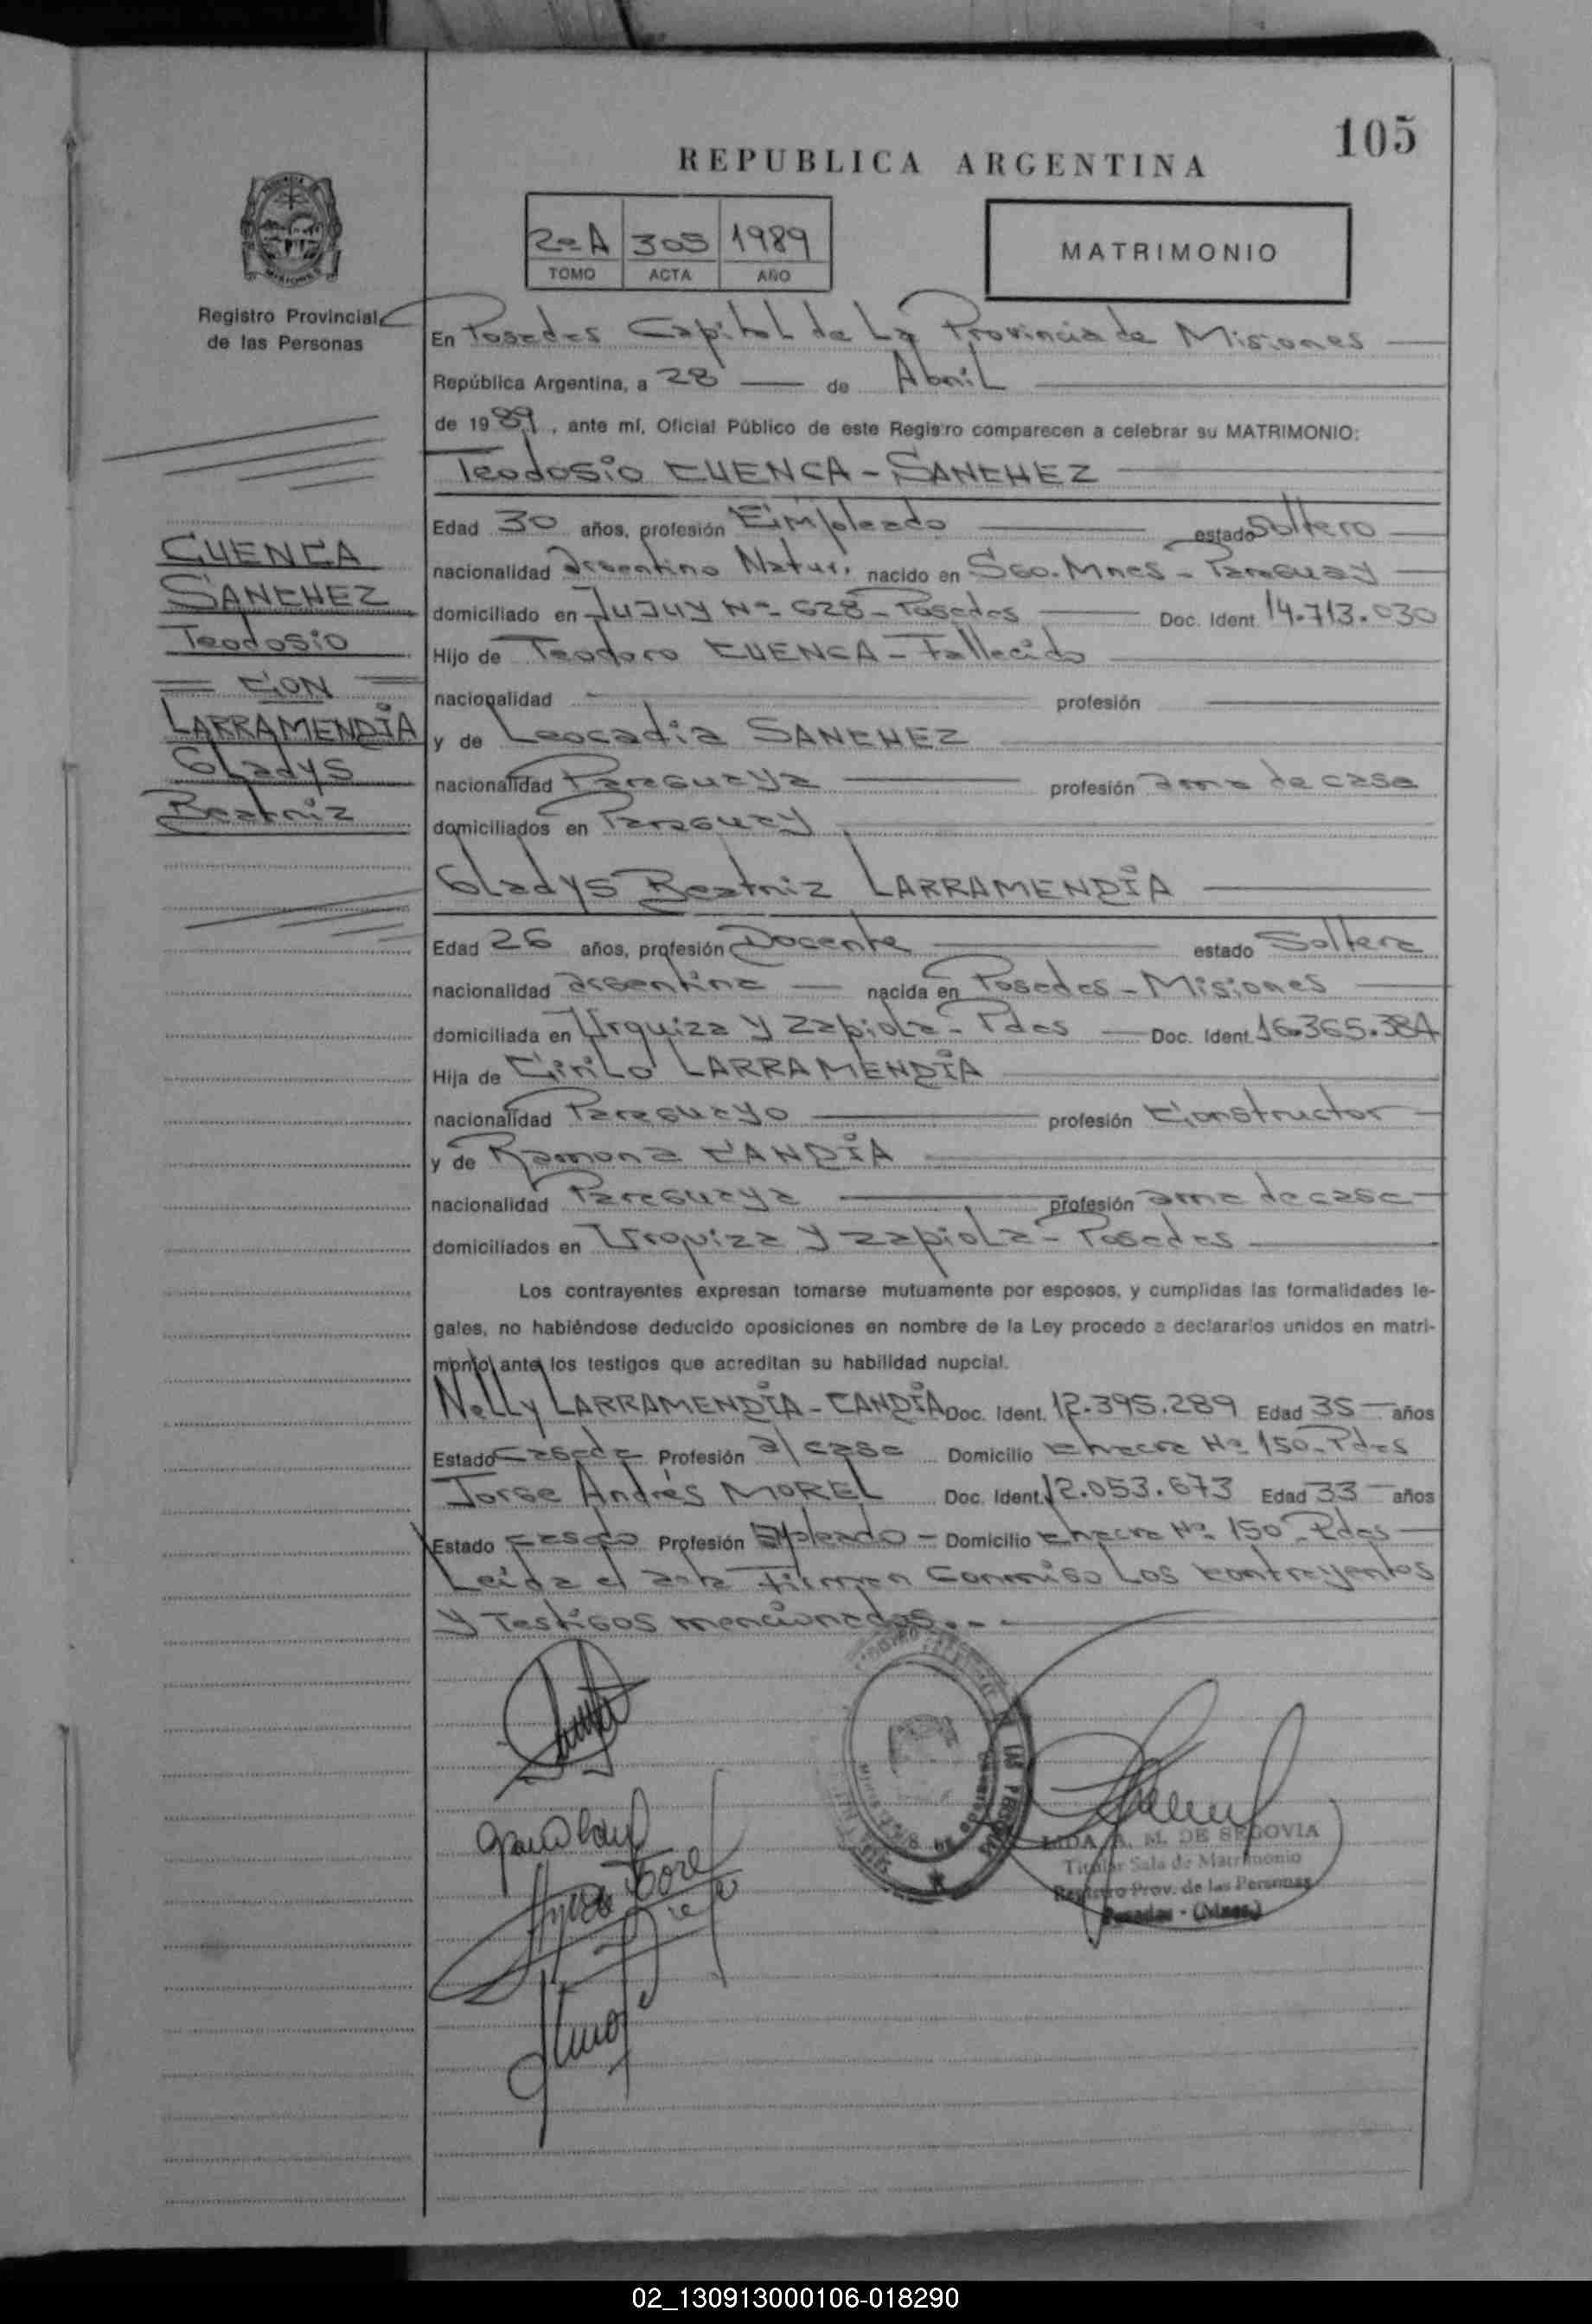 105
REPUBLICA ARGENTINA
2º A 305 1989
TOMO ACTA AÑO
MATRIMONIO
Registro Provincial
de las Personas
En Posadas Capital de La Provincia de Misiones
República Argentina, a 28 de Abril
de 1989, ante mí, Oficial Público de este Registro comparecen a celebrar su MATRIMONIO:
Teodosio CUENCA-SANCHEZ
Edad 30 años, profesión Empleado estado Soltero
nacionalidad argentino Natur. nacido en Sgo. Mnes - Paraguay
domiciliado en Jujuy Nº 628 - Posadas Doc. Ident. 14.713.030
Hijo de Teodoro CUENCA - Fallecido
nacionalidad profesión
y de Leocadia SANCHEZ
nacionalidad Paraguaya profesión ama de casa
domiciliados en Paraguay
CUENCA
SANCHEZ
Teodosio
CON
LARRAMENDIA
Gladys
Beatriz
Gladys Beatriz LARRAMENDIA
Edad 26 años, profesión Docente estado Soltera
nacionalidad argentina nacida en Posadas - Misiones
domiciliada en Urquiza y Zapiola - Pdas Doc. Ident. 16.365.384
Hija de Cirilo LARRAMENDIA
nacionalidad Paraguayo profesión Constructor
y de Ramona CANDIA
nacionalidad Paraguaya profesión ama de casa
domiciliados en Urquiza y Zapiola - Posadas
Los contrayentes expresan tomarse mutuamente por esposos, y cumplidas las formalidades le-
gales, no habiéndose deducido oposiciones en nombre de la Ley procedo a declararlos unidos en matri-
monio ante los testigos que acreditan su habilidad nupcial.
Nelly LARRAMENDIA - CANDIA Doc. Ident. 12.395.289 Edad 35 años
Estado casada Profesión a/casa Domicilio chacra Nº 150 - Pdas
Jorge Andrés MOREL Doc. Ident. 12.053.673 Edad 33 años
Estado casado Profesión Empleado - Domicilio chacra Nº 150 - Pdas
Leida el acta Firman Conmigo Los contrayentes
y Testigos mencionados.-
LIDA A. M. DE SEGOVIA
Titular Sala de Matrimonio
Registro Prov. de las Personas
Posadas - (Mnes.)
02_130913000106-018290